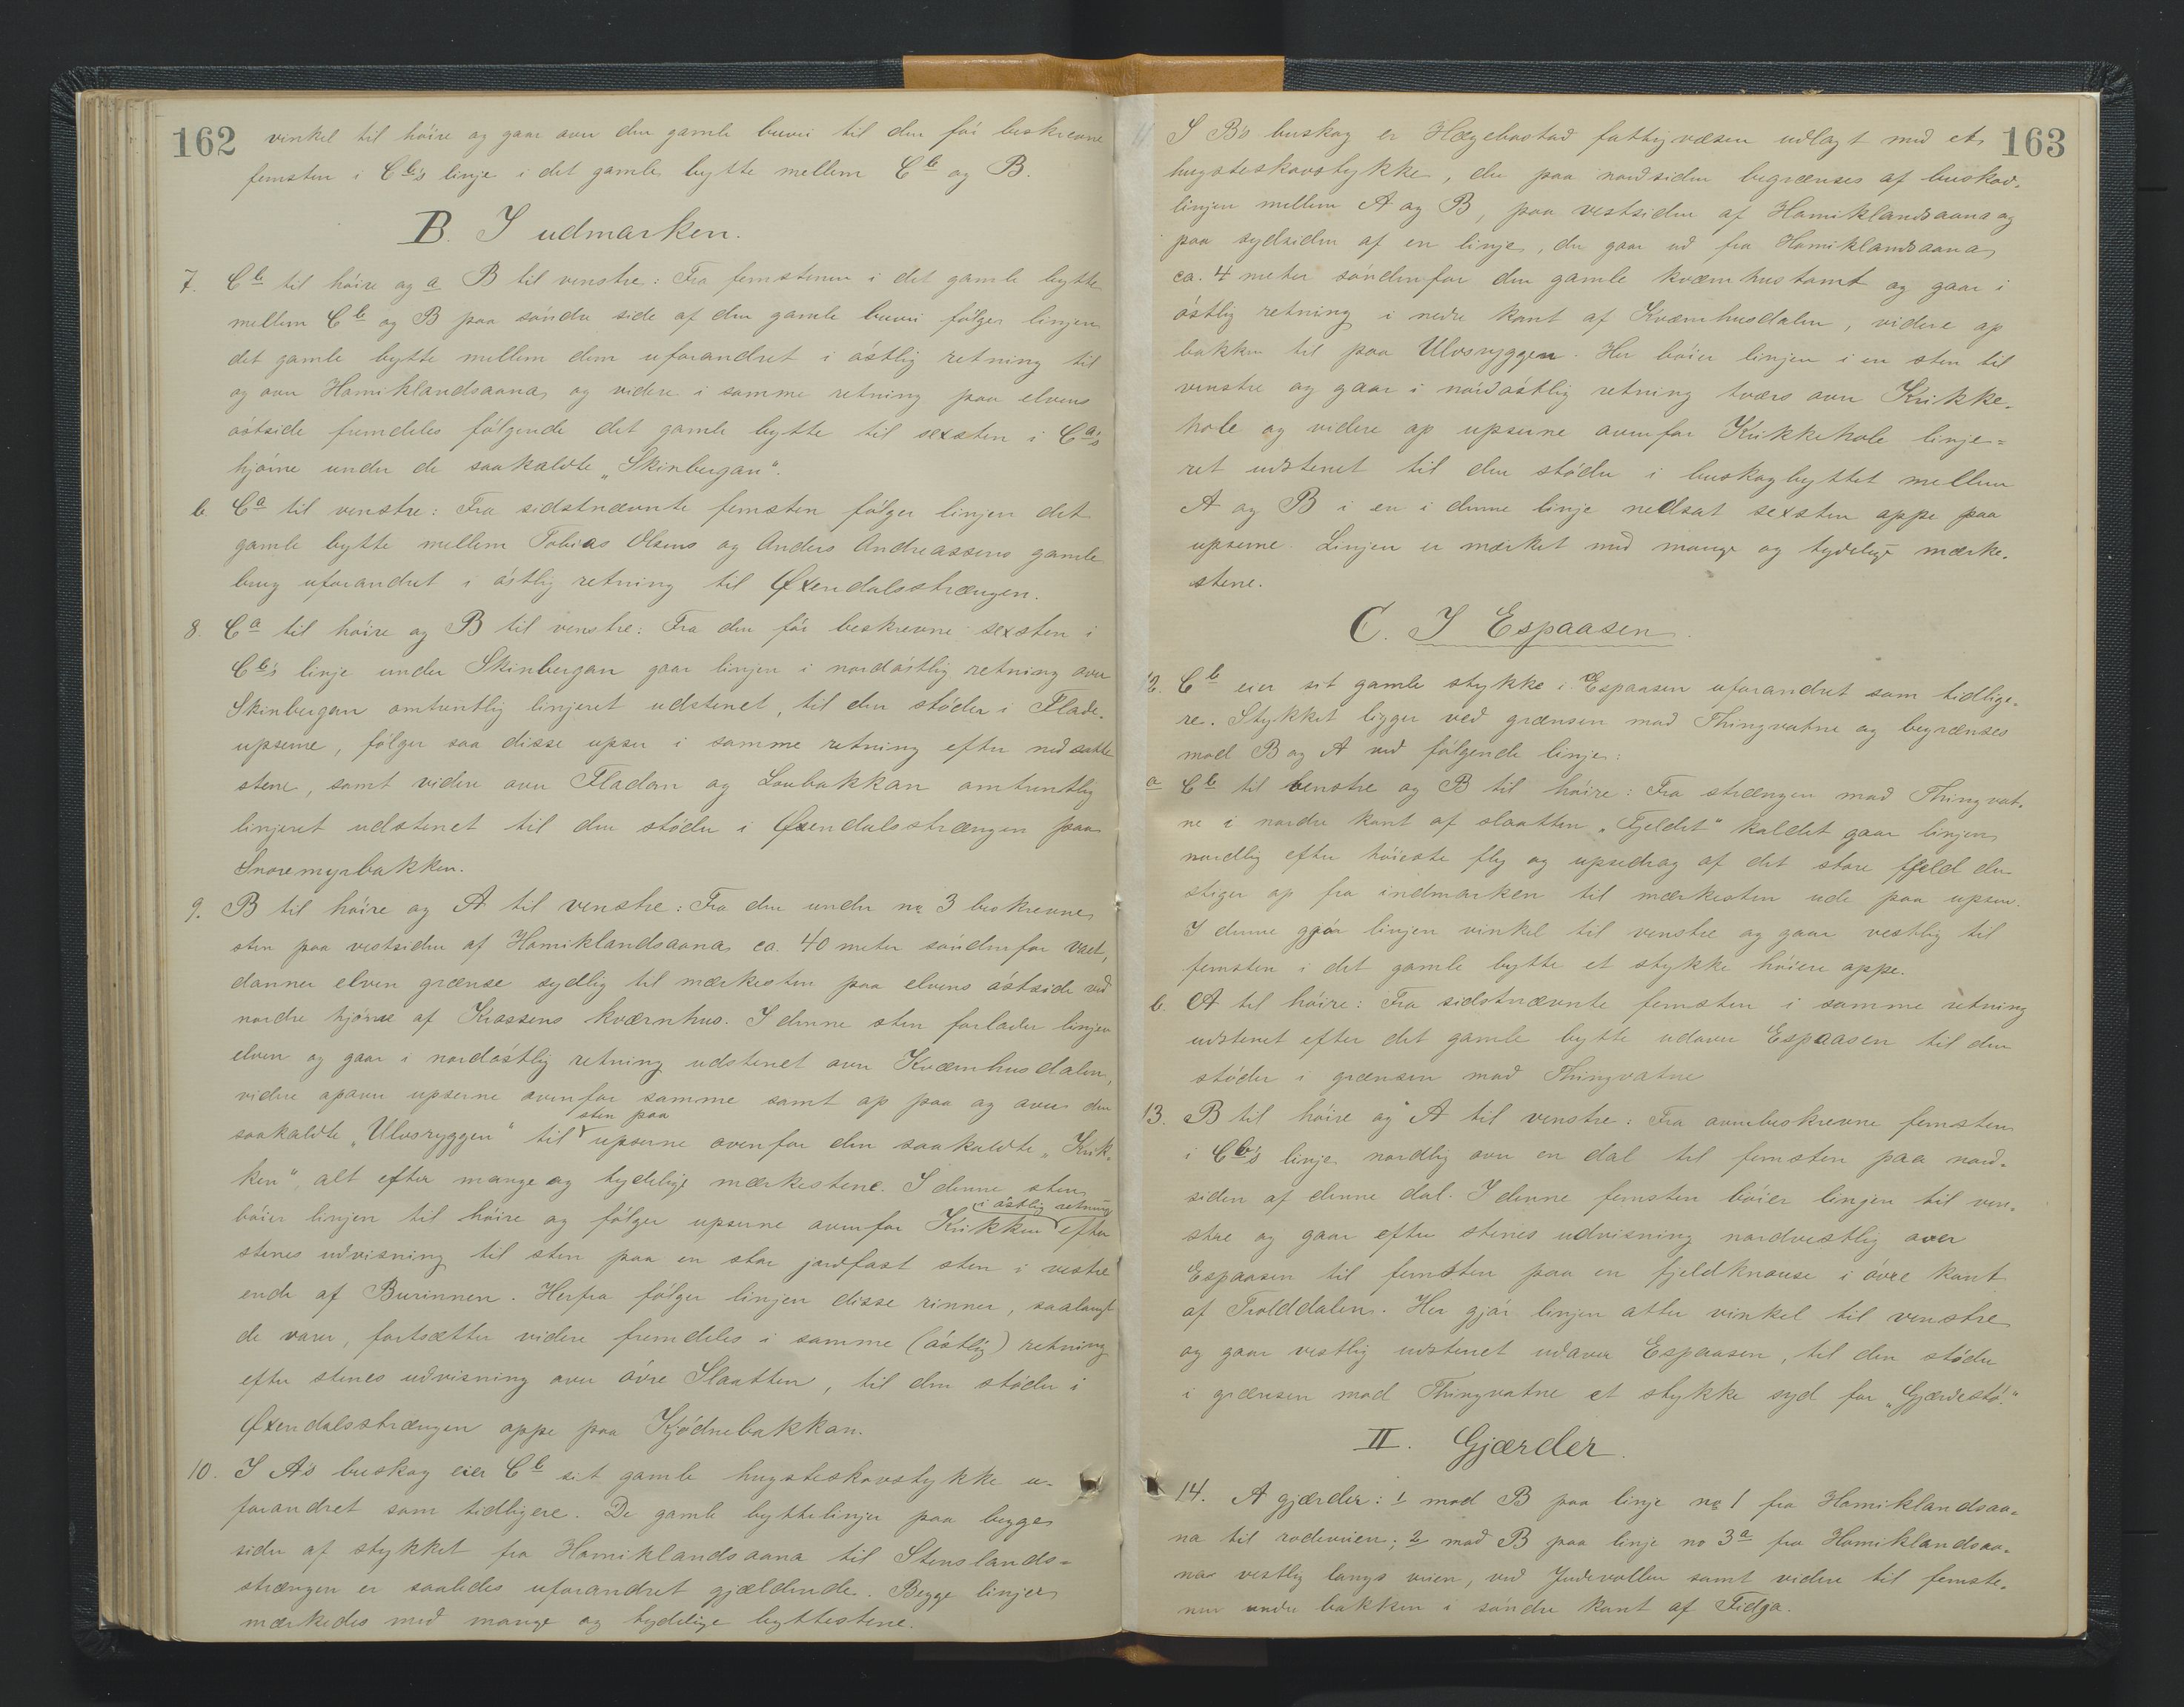 162
vinkel til høire og gaar over den gamle buvei til den før beskrevne
femsten i Cb's linje i det gamle bytte mellem Cb og B.
B. I udmarken.
7. Cb til høire og a B til venstre: Fra femstenen i det gamle bytte
mellem Cb og B paa søndre side af den gamle buvei følger linjen
det gamle bytte mellem dem uforandret i østlig retning til
og over Homiklandsaana og videre i samme retning paa elvens
østside fremdeles følgende det gamle bytte til sexsten i Ca's
hjørne under de saakaldte „Skinbergan".
b. Ca til venstre: Fra sidstnævnte femsten følger linjen det
gamle bytte mellem Tobias Olsens og Anders Andreassens gamle
brug uforandret i østlig retning til Øxendalsstrængen.
8. Ca til høire og B til venstre: Fra den før beskrevne sexsten i
Cb's linje under Skinbergan gaar linjen i nordøstlig retning over
Skinbergan omtrentlig linjeret udstenet, til den støder i Flade-
upserne, følger saa disse upser i samme retning efter nedsatte
stene, samt videre over Fladan og Loubakkan omtrentlig
linjeret udstenet til den støder i Øxendalsstrængen paa
Snoremyrbakken.
9. B til høire og A til venstre: Fra den under no 3 beskrevne
sten paa vestsiden af Homiklandsaana ca. 40 meter søndenfor vaet,
danner elven grænse sydlig til mærkesten paa elvens østside ved
nordre hjørne af Krossens kværnhus. I denne sten forlader linjen
elven og gaar i nordøstlig retning udstenet over Kværnhusdalen,
videre opover upserne ovenfor samme samt op paa og over den
sten paa
saakaldte „Ulvsryggen" til upserne ovenfor den saakaldte „Krik-
ken", alt efter mange og tydelige mærkestene. I denne sten
i østlig retning
bøier linjen til høire og følger upserne ovenfor Krikken efter
stenes udvisning til sten paa en stor jordfast sten i vestre
ende af Burinnen. Herfra følger linjen disse rinner, saalangt
de varer, fortsætter videre fremdeles i samme (østlig) retning
efter stenes udvisning over øvre Slaatten, til den støder i
Øxendalsstrængen oppe paa Kjødnebakkan.
10. I A's buskog eier Cb sit gamle hugsteskovstykke u-
forandret som tidligere. De gamle byttelinjer paa begge
sider af stykket fra Homiklandsaana til Stenslands-
strængen er saaledes uforandret gjældende. Begge linjer
mærkedes med mange og tydelige byttestene.
163
11 I B's buskog er Hægebostad fattigvæsen udlagt med et
hugsteskovstykke, der paa nordsiden begrænses af buskov-
linjen mellem A og B, paa vestsiden af Homiklandsaana og
paa sydsiden af en linje, der gaar ud fra Homiklandsaana
ca. 4 meter søndenfor den gamle kværnhustomt og gaar i
østlig retning i nedre kant af Kværnhusdalen, videre op
bakken til paa Ulvsryggen. Her bøier linjen i en sten til
venstre og gaar i nordøstlig retning tværs over Krikke-
hole og videre op upserne ovenfor Krikkehole linje-
ret udstenet til den støder i buskogbyttet mellem
A og B i en i denne linje nedsat sexsten oppe paa
upserne. Linjen er mærket med mange og tydelige mærke-
stene.
C. I Espaasen.
12. Cb eier sit gamle stykke i Espaasen uforandret som tidlige-
re. Stykket ligger ved grænsen mod Thingvatne og begrænses
mod B og A ved følgende linje:
a Cb til venstre og B til høire: Fra strængen mod Thingvat-
ne i nordre kant af slaatten „Fjeldet" kaldet gaar linjen
nordlig efter høieste fly og upsedrag af det store fjeld der
stiger op fra indmarken til mærkesten ude paa upsen.
I denne gjør linjen vinkel til venstre og gaar vestlig til
femsten i det gamle bytte et stykke høiere oppe.
b. A til høire: Fra sidstnævnte femsten i samme retning
udstenet efter det gamle bytte udover Espaasen til den
støder i grænsen mod Thingvatne
13. B til høire og A til venstre: Fra ovenbeskrevne femsten
i Cb's linje nordlig over en dal til femsten paa nord-
siden af denne dal. I denne femsten bøier linjen til ven-
stre og gaar efter stenes udvisning nordvestlig over
Espaasen til femsten paa en fjeldknause i øvre kant
af Trolddalen. Her gjør linjen atter vinkel til venstre
og gaar vestlig udstenet udover Espaasen, til den støder
i grænsen mod Thingvatne et stykke syd for „Gjærdestø."
II. Gjærder.
14. A gjærder: 1 mod B paa linje no 1 fra Homiklandsaa-
na til rodeveien; 2 mod B paa linje no 3a fra Homiklandsaa-
na vestlig langs veien, ved Judevollen samt videre til femste-
nen under bakken i søndre kant af Fidga.